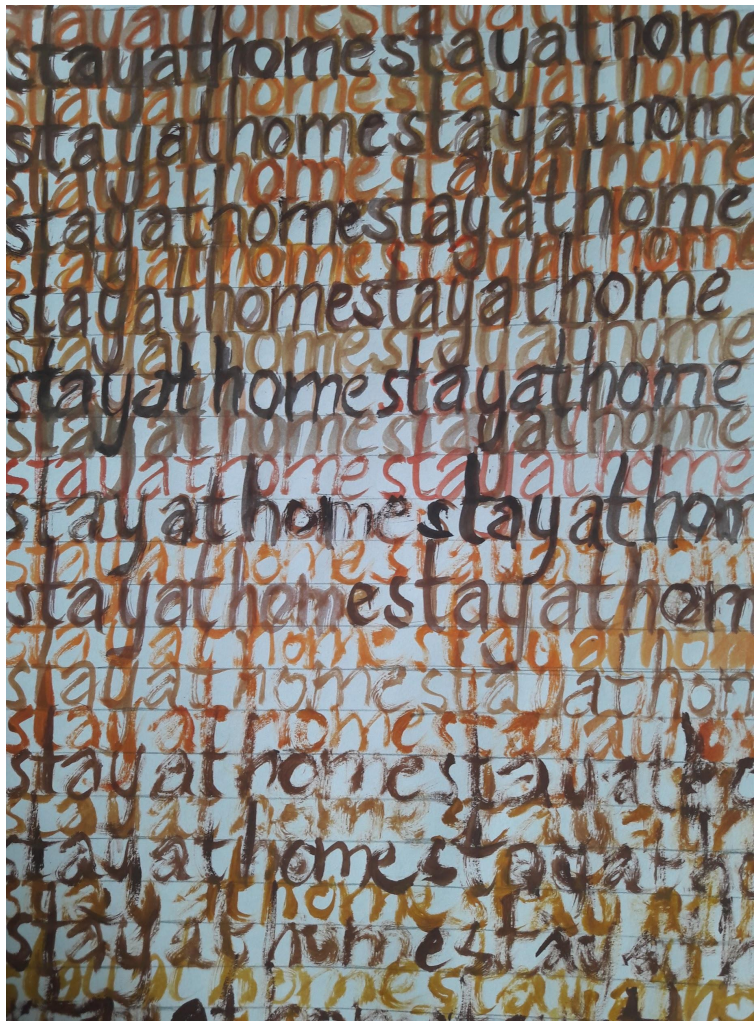 stayathomestayathome
stayathomestayathome
stayathomestayathome
stayathomestayathome
stayathomestayathome
stayathomestayathome
stayathomestayathome
stayathomestayathome
stayathomestayathome
stayathomestayathome
stayathomestayathome
stayathomestayathome
stay at homestayathom
stayathomestayathom
stayathomestayathom
stayathomestayathom
stayathomestayathom
stay at homestayatho
stay at homestayatho
stay at home
stayathomestayath
stay at home stay
stay at home stay
stayathomestay